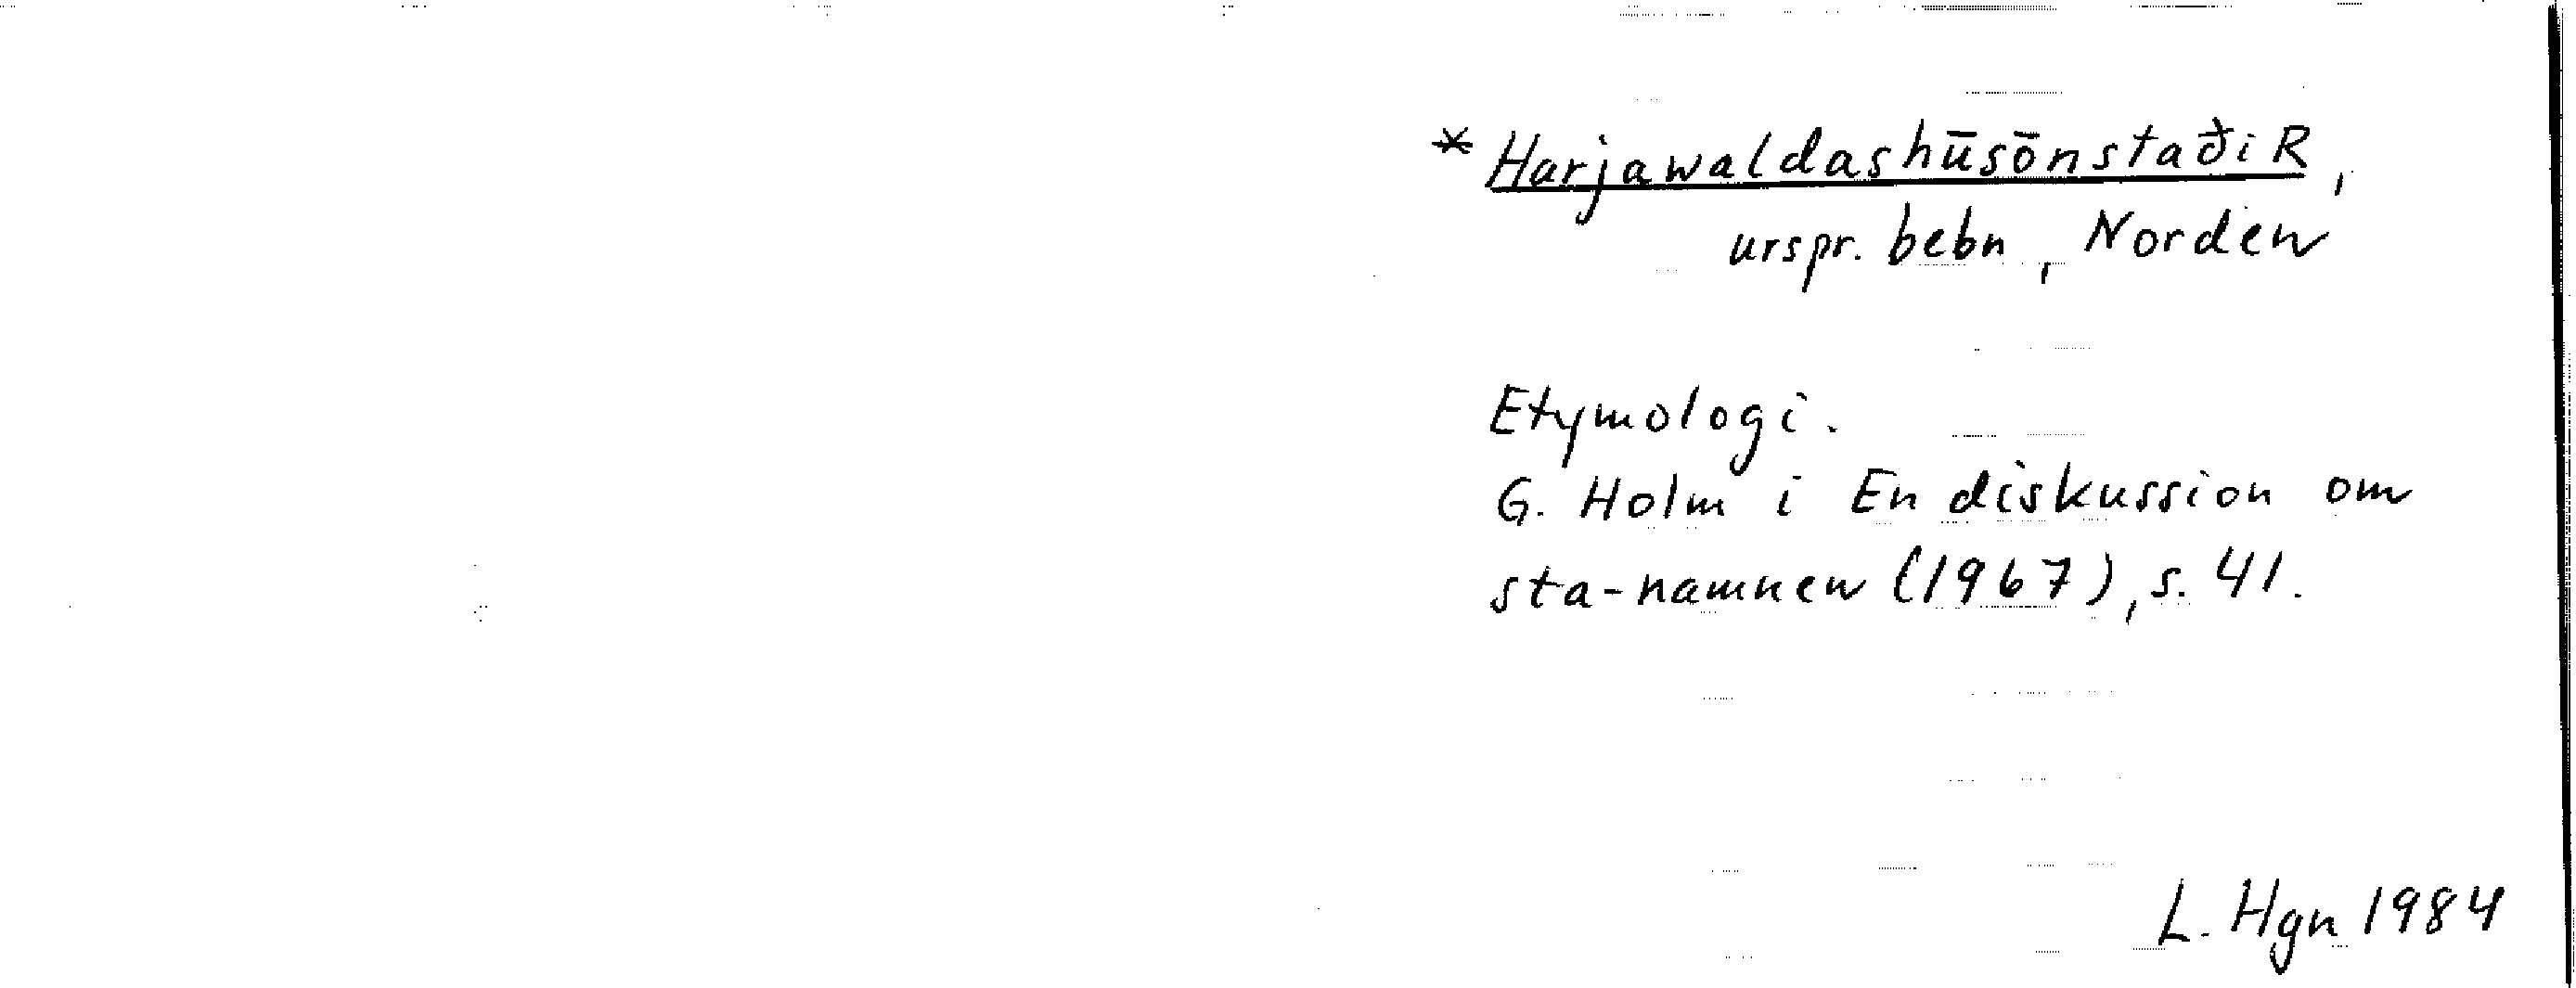 *HarjawaldashūsōnstaðiR,
urspr. bebn, Norden
Etymologi.
G. Holm i En diskussion om
sta-namnen (1967), s. 41.
L. Hgn 1984